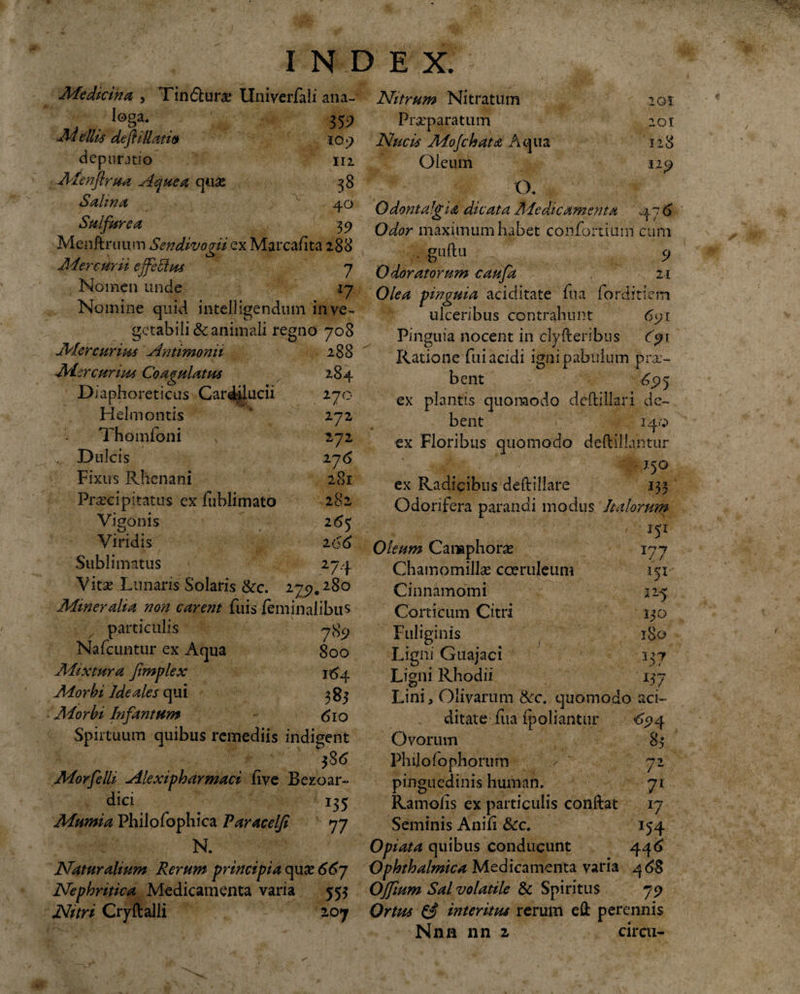 INDEX.
Medicina , Tincturæ Univerſali ana-
loga. 359
Mellis deſtillatio 109
depuratio 112
Menſtrua Aquea quæ 38
Salina 40
Sulfurea 39
Menſtruum Sendivogii ex Marcaſita 288
Mercurii effectus 7
Nomen unde 17
Nomine quid intelligendum in ve-
getabili & animali regno 708
Mercurius Antimonii 288
Mercurius Coagulatus 284
Diaphoreticus Cardilucii 270
Helmontis 272
Thomſoni 272
Dulcis 276
Fixus Rhenani 281
Præcipitatus ex ſublimato 282
Vigonis 265
Viridis 266
Sublimatus 274
Vitæ Lunaris Solaris &c. 279. 280
Mineralia non carent ſuis ſeminalibus
particulis 789
Naſcuntur ex Aqua 800
Mixtura ſimplex 164
Morbi Ideales qui 383
Morbi Infantum 610
Spirtuum quibus remediis indigent
386
Morſelli Alexipharmaci ſive Bezoar-
dici 135
Mumia Philoſophica Paracelſi 77
N.
Naturalium Rerum principia quæ 667
Nephritica Medicamenta varia 553
Nitri Cryſtalli 207
Nitrum Nitratum 201
Præparatum 201
Nucis Moſchatæ Aqua 128
Oleum 129
O.
Odontalgiæ dicata Medicamenta 476
Odor maximum habet conſortium cum
guſtu 9
Odoratorum cauſa 21
Olea pinguia aciditate ſua ſorditiem
ulceribus contrahunt 691
Pinguia nocent in clyſteribus 691
Ratione ſui acidi igni pabulum præ-
bent 695
ex plantis quomodo deſtillari de-
bent 140
ex Floribus quomodo deſtillantur
150
ex Radicibus deſtillare 133
Odorifera parandi modus Italorum
151
Oleum Camphoræ 177
Chamomillæ cœruleum 151
Cinnamomi 125
Corticum Citri 130
Fuliginis 180
Ligni Guajaci 137
Ligni Rhodii 137
Lini, Olivarum &c. quomodo aci-
ditate ſua ſpoliantur 694
Ovorum 83
Philoſophorum 72
pinguedinis human. 71
Ramoſis ex particulis conſtat 17
Seminis Aniſi &c. 154
Opiata quibus conducunt 446
Ophthalmica Medicamenta varia 468
Oſſium Sal volatile & Spiritus 79
Ortus & interitus rerum eſt perennis
Nnn nn 2 circu-